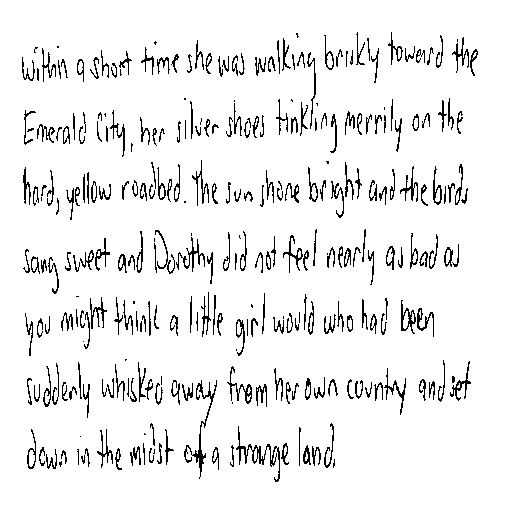 within a short time she was walking briskly toward the
Emerald City, her silver shoes tinkling merrily on the
hard, yellow roadbed. The sun shone bright and the birds
sang sweet and Dorothy did not feel nearly as bad as
you might think a little girl would who had been
suddenly whisked away from her own country and set
down in the midst of a strange land.